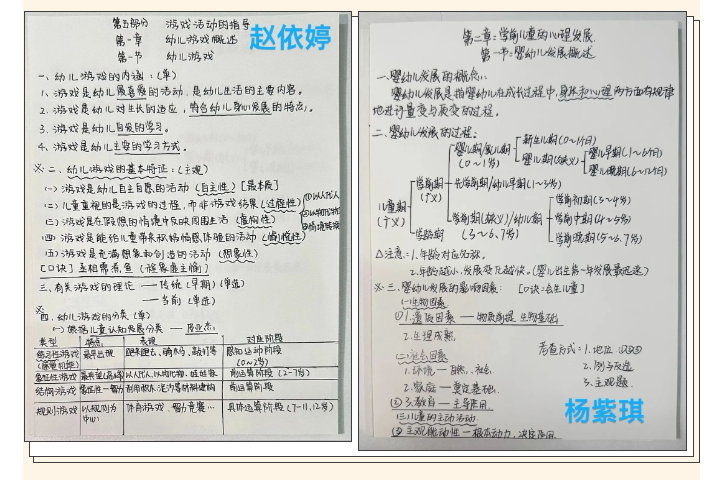 第五部分 游戏活动的指导
第一章 幼儿游戏概述
第一节 幼儿游戏
赵依婷
一、幼儿游戏的内涵:(单)
1、游戏是幼儿最喜爱的活动,是幼儿生活的主要内容。
2、游戏是幼儿对生长的适应,符合幼儿身心发展的特点。
3、游戏是幼儿自发的学习。
4、游戏是幼儿主要的学习方式。
※二、幼儿游戏的基本特征:(主观)
(一)游戏是幼儿自主自愿的活动(自主性)[最本质]
(二)儿童重视的是游戏的过程,而非游戏结果(过程性)
(三)游戏是在假想的情境中反映周围生活(虚构性)
①以人代人
②以物代物
③情境转换
(四)游戏是能给儿童带来积极情感体验的活动(愉悦性)
(五)游戏是充满想象和创造的活动(想象性)
三、有关游戏的理论 — 传统(早期)(单选)
— 当前(单选)
※四、幼儿游戏的分类(单)
(一)依据儿童认知发展分类 — 皮亚杰:
类型 特点 表现 对应阶段
练习性游戏 最早出现 感知运动阶段
(0~2岁)
象征性游戏 前运算阶段(2-7岁)
结构游戏 前运算阶段
规则游戏 以规则为中心 体育游戏、智力竞赛… 具体运算阶段(7-11,12岁)
第二章:学前儿童的心理发展
第一节:婴幼儿发展概述
一、婴幼儿发展的概念:
婴幼儿发展是指婴幼儿在成长过程中,身体和心理两方面有规律
地进行量变与质变的过程。
二、婴幼儿发展的过程:
新生儿期(0~1个月)
婴儿期/乳儿期
(0~1岁)
婴儿期(狭义)
婴儿早期(1~6个月)
婴儿晚期(6~12个月)
学前期
(广义)
先学前期/幼儿早期(1~3岁)
儿童期
(广义)
学前期(狭义)/幼儿期
(3~6、7岁)
学前初期(3~4岁)
学前中期(4~5岁)
学前晚期(5~6、7岁)
学龄期
△注意:1.年龄对应名称。
2.年龄越小,发展变化越快。(婴儿出生第一年发展最迅速)
※三、婴幼儿发展的影响因素:
(一)生物因素
①1.遗传因素 — 物质前提 生物基础
2.生理成熟
(二)社会因素
1.环境 — 自然、社会
2.家庭 — 奠定基础.
②3.教育 — 主导作用
考查方式:1.地位
2.例子反选
3.主观题.
(三)儿童的主动活动
③主观能动性 — 根本动力、决定作用.
杨紫琪